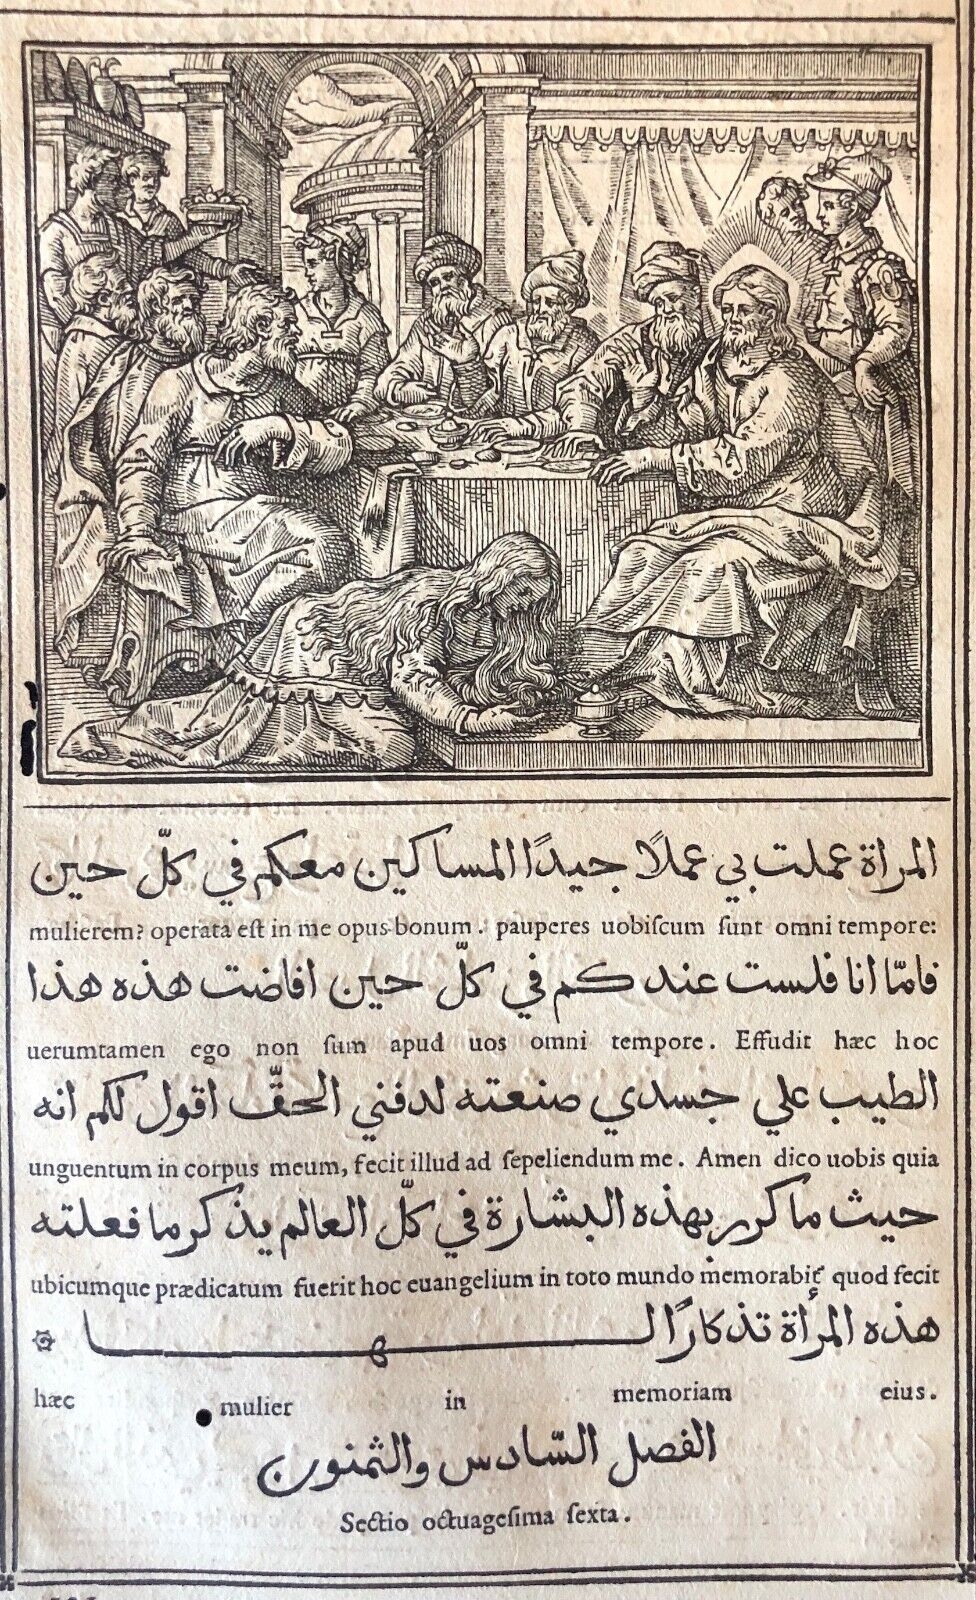 المراة عملت بي عملًا جيدًا المساكين معكم في كلّ حين
mulierem? operata eſt in me opus bonum. pauperes uobiſcum ſunt omni tempore:
فامّا انا فلست عندكم في كلّ حين افاضت هذه هذا
uerumtamen ego non ſum apud uos omni tempore. Effudit hæc hoc
الطيب علي جسدي صنعته لدفني الحقّ اقول لكم انه
unguentum in corpus meum, fecit illud ad ſepeliendum me. Amen dico uobis quia
حيث ما كرر بهذه البشارة في كلّ العالم يذكر ما فعلته
ubicumque prædicatum fuerit hoc euangelium in toto mundo memorabit quod fecit
هذه المرأة تذكارًا لها
hæc mulier in memoriam eius.
الفصل السّادس والثمنون
Sectio octuageſima ſexta.